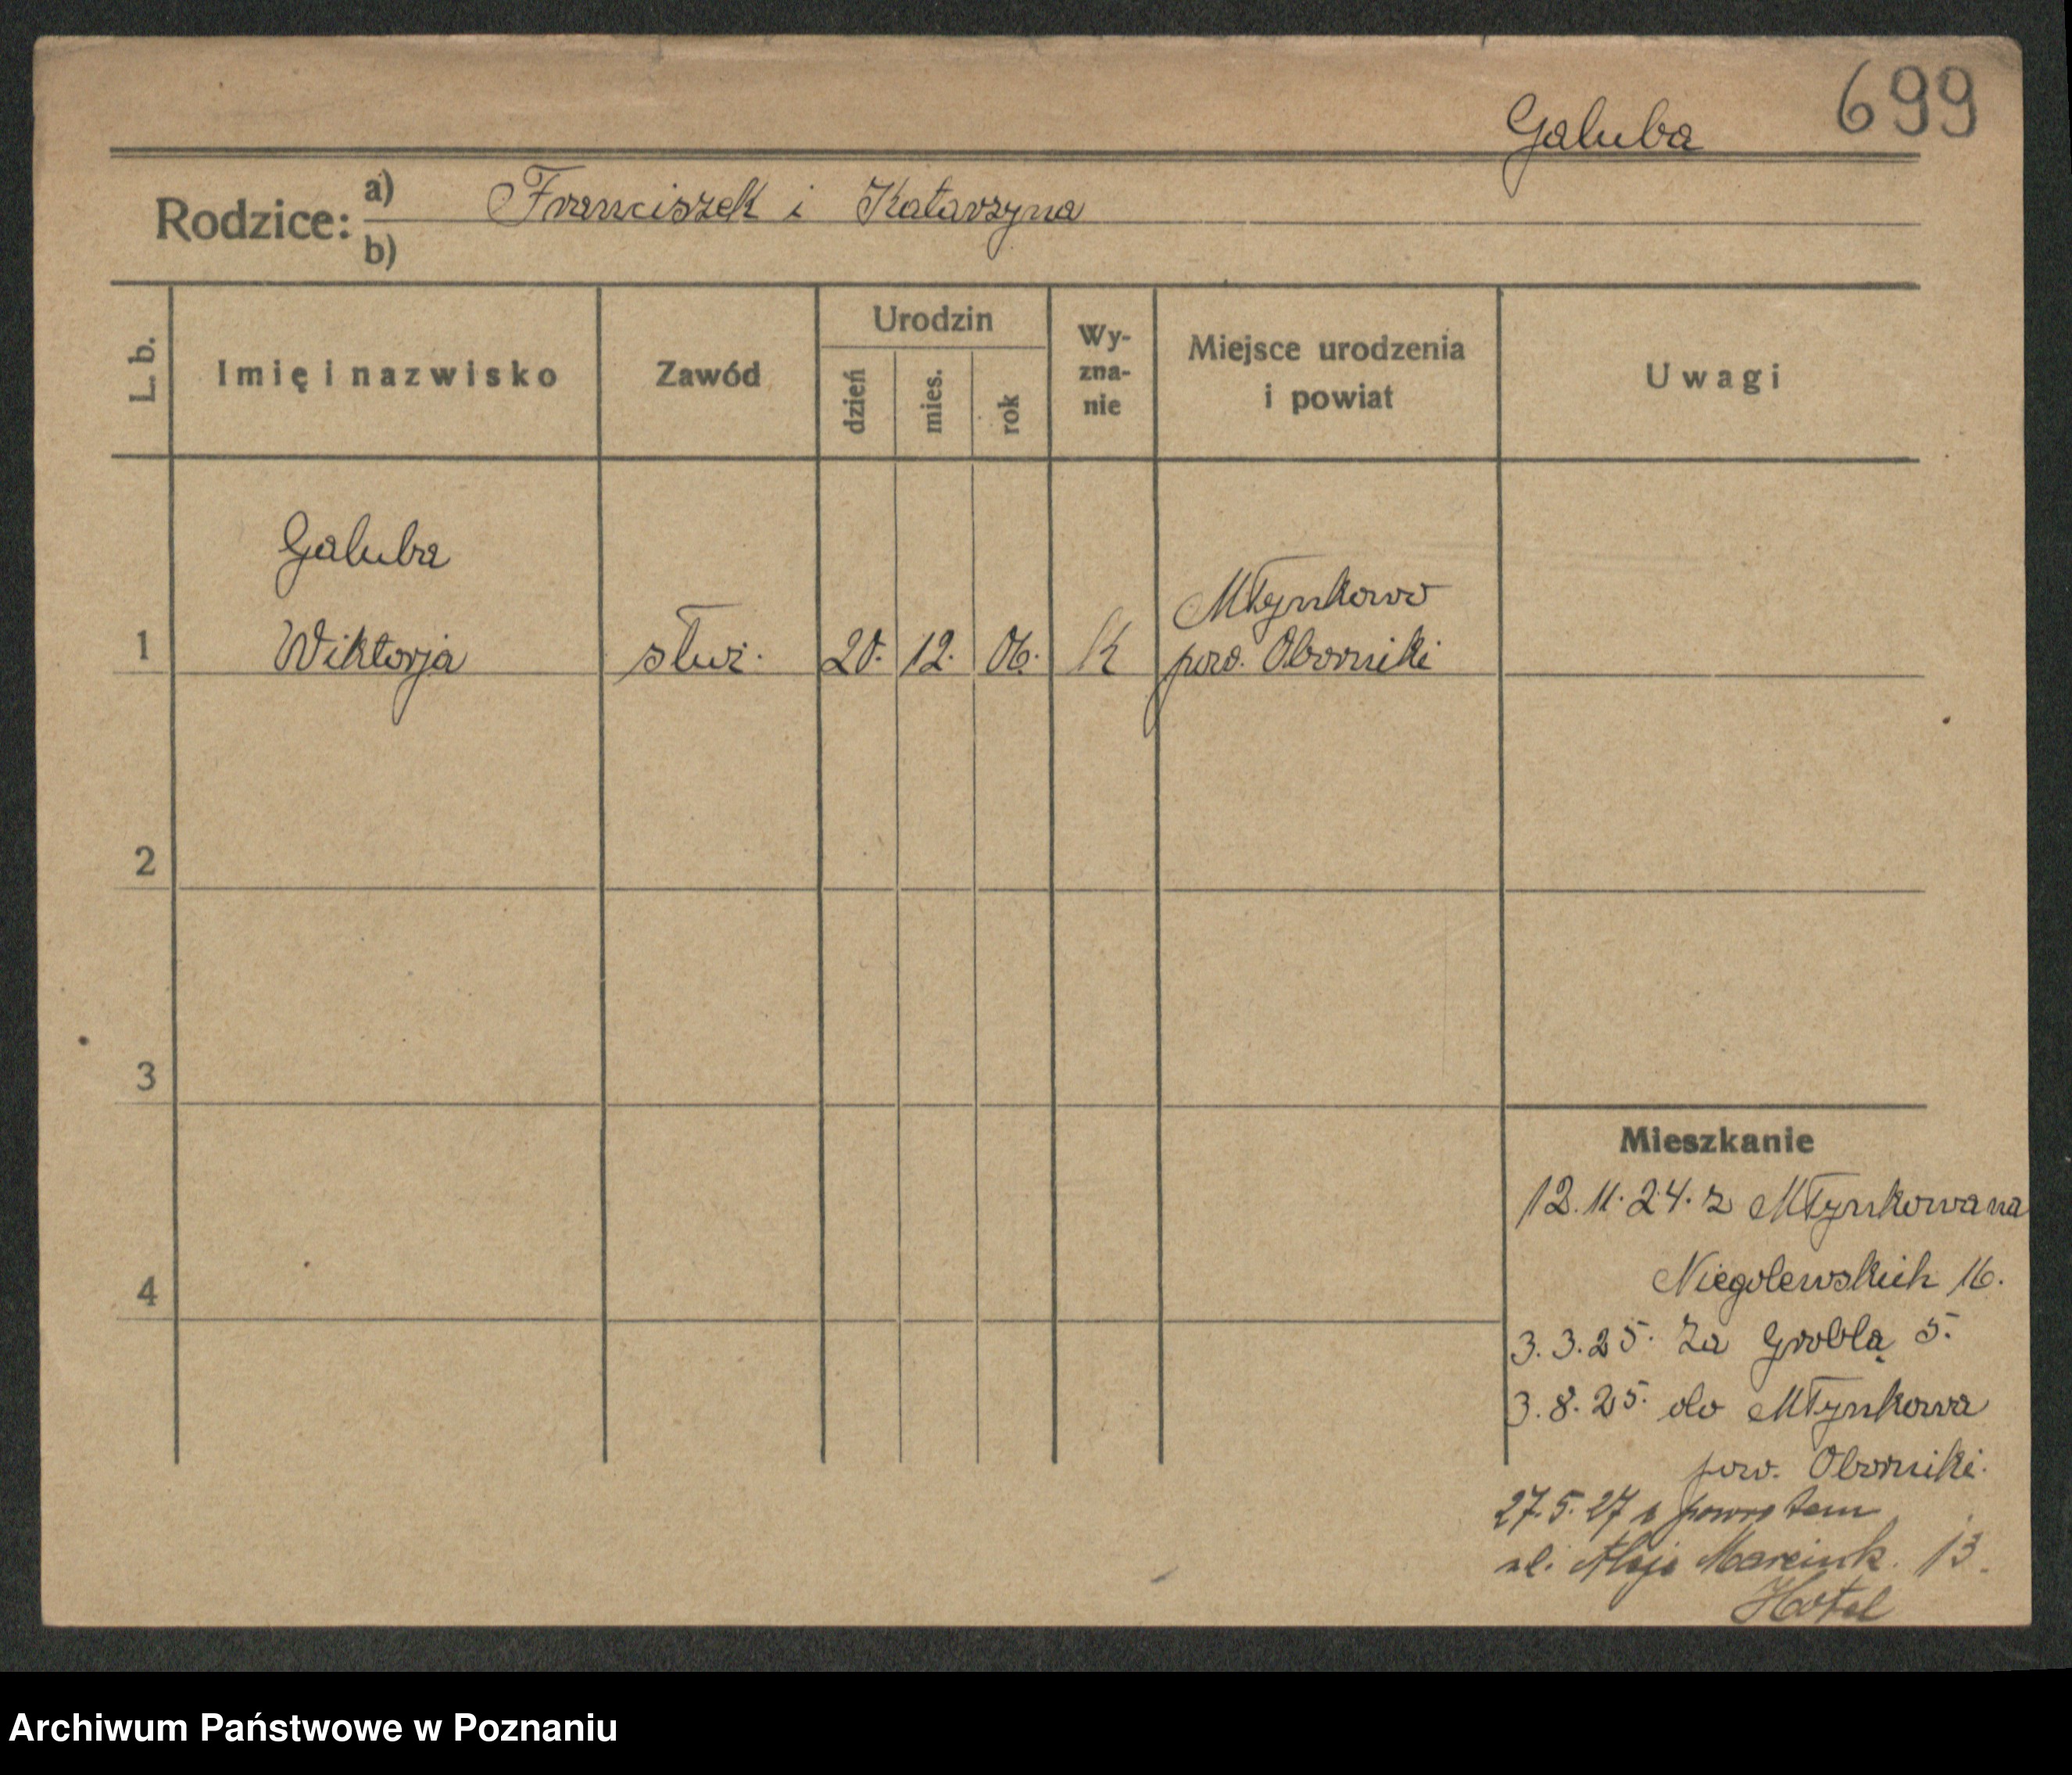 699
Galuba
Rodzice: a) Franciszek i Katarzyna
b)
L. b.
Imię i nazwisko
Zawód
Urodzin
dzień
mies.
rok
Wy-
zna-
nie
Miejsce urodzenia
i powiat
Uwagi
Galuba
Młynkowo
1 Wiktorja służ. 20. 12. 06. K pow. Oborniki
2
3
4
Mieszkanie
12.11.24. z Młynkowa na
Niegolewskich 16.
3.3.25. Za Groblą 5.
3.8.25. do Młynkowa
pow. Oborniki.
27.5.27 z powrotem
ul. Aleje Marcink. 13.
Hotel
Archiwum Państwowe w Poznaniu